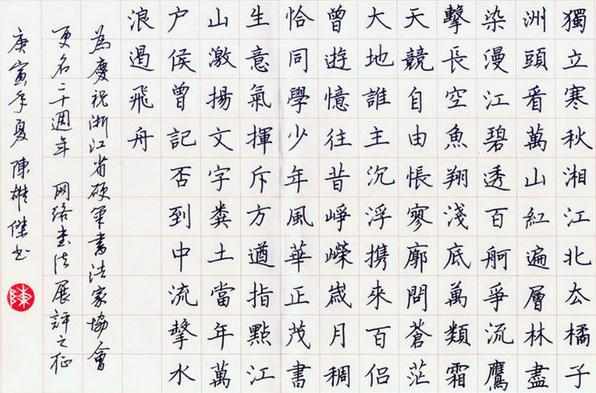 獨立寒秋湘江北厺橘子
洲頭看萬山紅遍層林盡
染漫江碧透百舸爭流鷹
擊長空魚翔淺底萬類霜
天競自由悵寥廓問蒼茫
大地誰主沉浮携來百侶
曾遊憶往昔崢嶸歲月稠
恰同學少年風華正茂書
生意氣揮斥方遒指點江
山激揚文字糞土當年萬
户侯曾記否到中流擊水
浪遏飛舟
為慶祝浙江省硬筆書法家協會
更名二十週年 网络书法展評之征
庚寅年夏陳雄傑书
陳